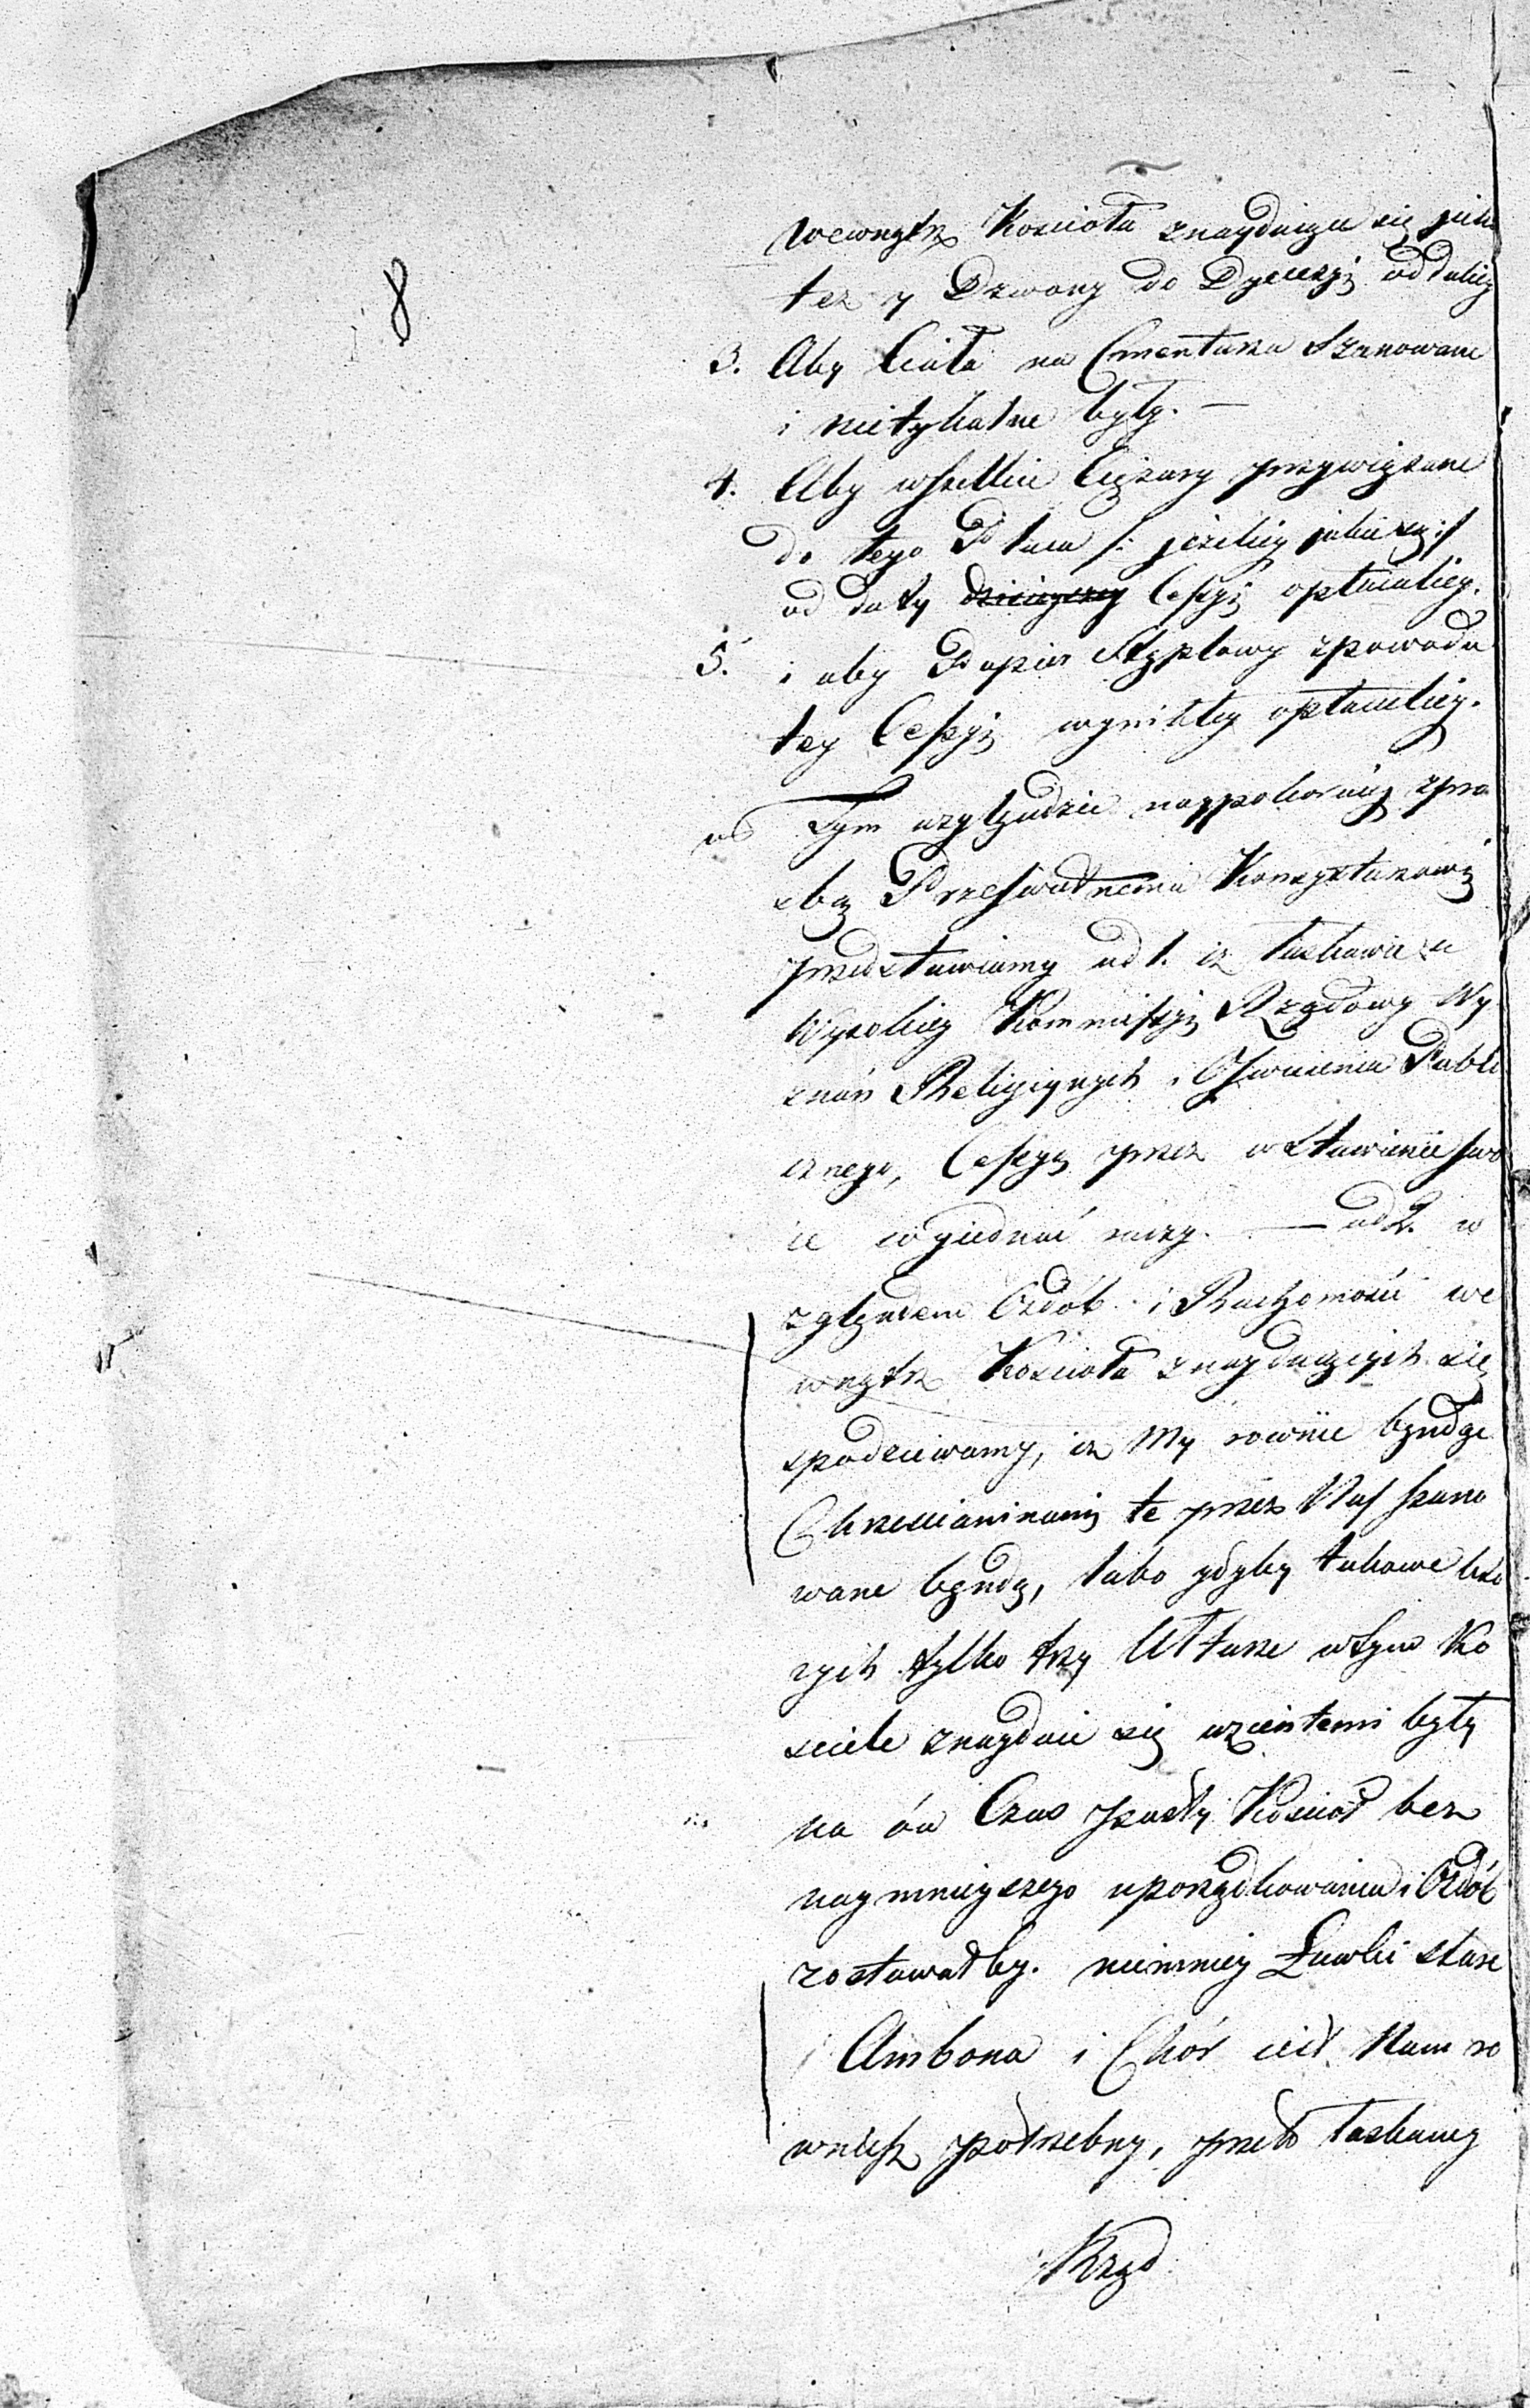 8
wewnątrz Koscioła znayduiące się iako
tez y Dzwony do Dyecezyi oddaliey
3. Aby Ciała na Cmentarzu Szanowane
i nietykalne były. —
4. Aby wszelkie Ciężary przywiązane
do tego Placu /: jeżeliby jakie są :/
od daty dzisieyszey Cessyi opłacaliey.
5. i aby Papier Stęplowy z powodu
tey Cessyi wynikły opłacaliey.
w Tym względzie naypokorniey z pro
sbą Prześwietnemu Konsystorzowi
przedstawiamy ad 1. iż łaskawie u
Wysokiey Kommissyi Rządowy Wy
znań Religiynych i Oświecenia Publi
cznego, Cessyą przez wstawienie swo
ie wyiednać raczy. — ad 2. w
zględem Ozdób i Ruchomości we
wnątrz Kościoła znayduiących się
spodziewamy, iż My rownie będąc
Chrzescianinami te przez Nas szano
wane będą, lubo gdyby takowe
rych tylko trzy Ołtarze w tym Ko
sciele znayduie się wzientemi były
na ów Czas pusty Kościoł bez
naymnieyszego uporządkowania i Ozdób
zostawałby. niemniey Ławki stare
i Ambona i Chór iest Nam ro
wnież potrzebny, przeto łaskawy
Rząd